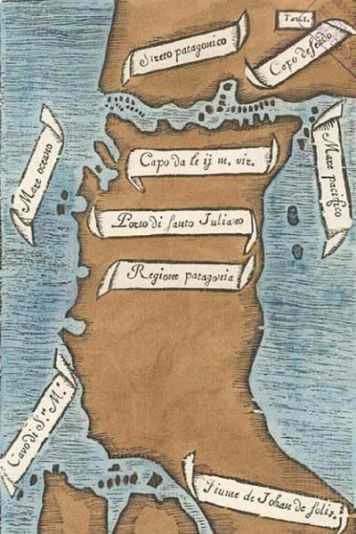 Streto patagonico
Capo deseado
Mare oceano
Capo da le ij m. vir.
Mare pacifico
Porto di santo Juliano
Regione patagonia
Cavo di S.ta M.a
Fiume de Johan de solis.